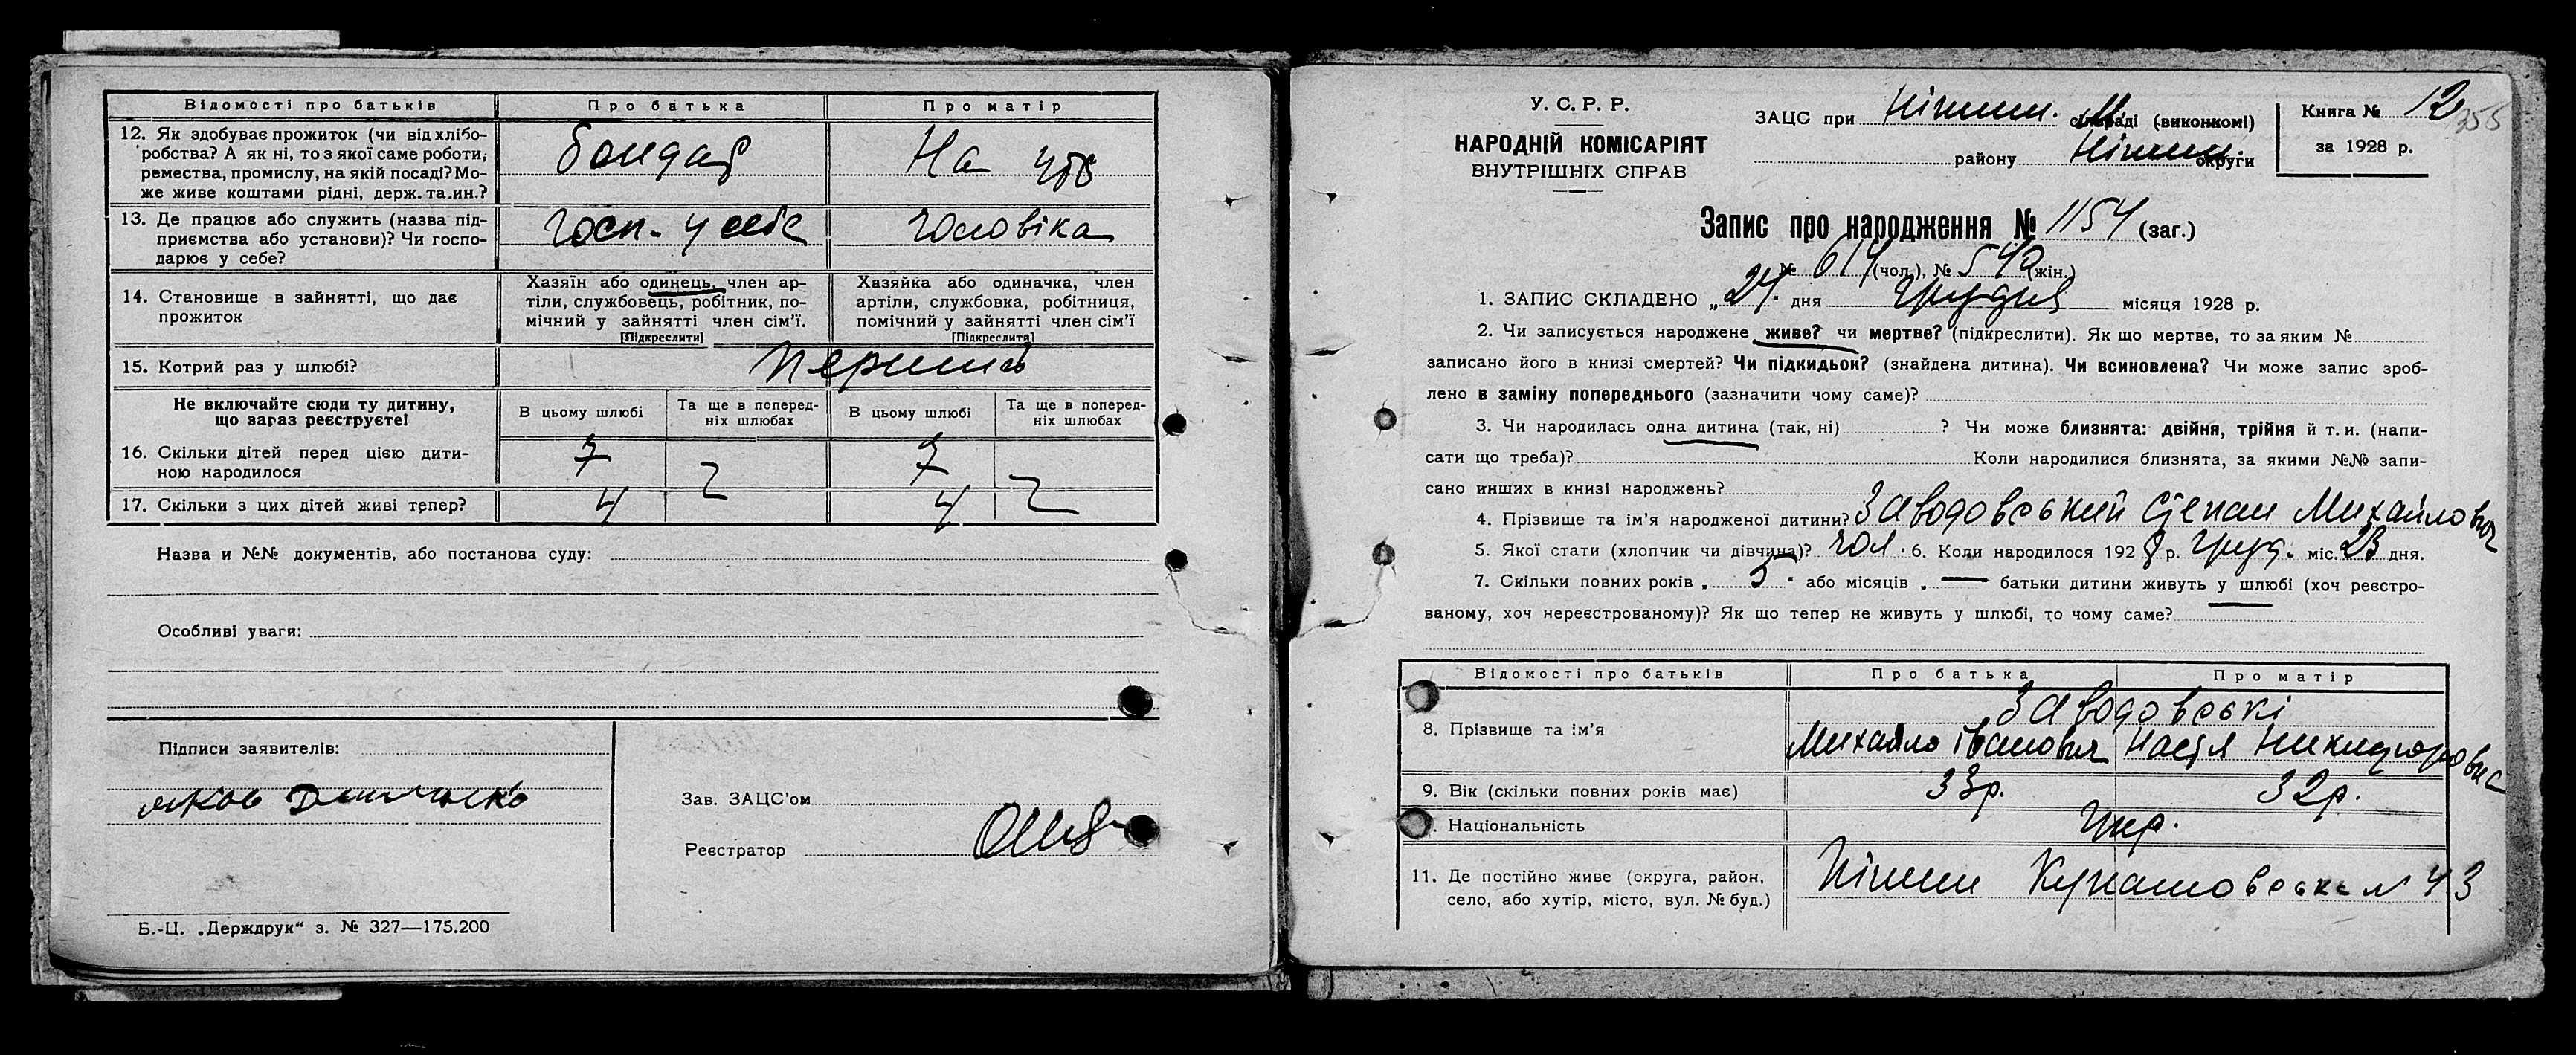 Відомості про батьків Про батька Про матір
12. Як здобуває прожиток (чи від хлібо- Бондар На утр
робства? А як ні, то з якої саме роботи,
ремества, промислу, на якій посаді? Мо-
же живе коштами рідні, держ. та.ин.?
13. Де працює або служить (назва під- госп. у себе чоловіка
приємства або установи)? Чи госпо-
дарює у себе?
14. Становище в зайнятті, що дає
прожиток
Хазяїн або одинець, член ар-
тіли, службовець, робітник, по-
мічний у зайнятті член сім'ї.
[Підкреслити]
Хазяйка або одиначка, член
артіли, службовка, робітниця,
помічний у зайнятті член сім'ї
[Підкреслити]
15. Котрий раз у шлюбі?
Не включайте сюди ту дитину,
що зараз реєструєте!
В цьому шлюбі Та ще в поперед-
ніх шлюбах В цьому шлюбі Та ще в поперед-
ніх шлюбах
16. Скільки дітей перед цією дити- 7 7
ною народилося
17. Скільки з цих дітей живі тепер? 4 4
Назва и №№ документів, або постанова суду:
Особливі уваги:
Підписи заявителів:
Яков
Зав. ЗАЦС'ом
Реєстратор
Б.-Ц. „Держдрук“ з. № 327—175.200
У. С. Р. Р.
НАРОДНІЙ КОМІСАРІЯТ
ВНУТРІШНІХ СПРАВ
ЗАЦС при Ніжин. М. сільраді (виконкомі)
району Ніжин. округи
Книга № 12
за 1928 р.
355
Запис про народження № 1154 (заг.)
№ 614 (чол.), № 540 (жін.)
1. ЗАПИС СКЛАДЕНО „24“ дня Грудня місяця 1928 р.
2. Чи записується народжене живе? чи мертве? (підкреслити). Як що мертве, то за яким №
записано його в книзі смертей? Чи підкидьок? (знайдена дитина). Чи всиновлена? Чи може запис зроб-
лено в заміну попереднього (зазначити чому саме)?
3. Чи народилась одна дитина (так, ні) ? Чи може близнята: двійня, трійня й т. и. (напи-
сати що треба)? Коли народилися близнята, за якими №№ запи-
сано инших в книзі народжень?
4. Прізвище та ім'я народженої дитини? Заводовський Степан Михайлович
5. Якої стати (хлопчик чи дівчина)? чол. 6. Коли народилося 1928 р. груд. міс. 23 дня.
7. Скільки повних років „5“ або місяців „— батьки дитини живуть у шлюбі (хоч реєстро-
ваному, хоч нереєстрованому)? Як що тепер не живуть у шлюбі, то чому саме?
Відомості про батьків Про батька Про матір
Заводовські
8. Прізвище та ім'я Михайло Іванович Настя Никифоровна
9. Вік (скільки повних років має) 33р. 32р.
Національність Укр.
11. Де постійно живе (округа, район, Ніжин Кунашовська № 43
село, або хутір, місто, вул. № буд.)